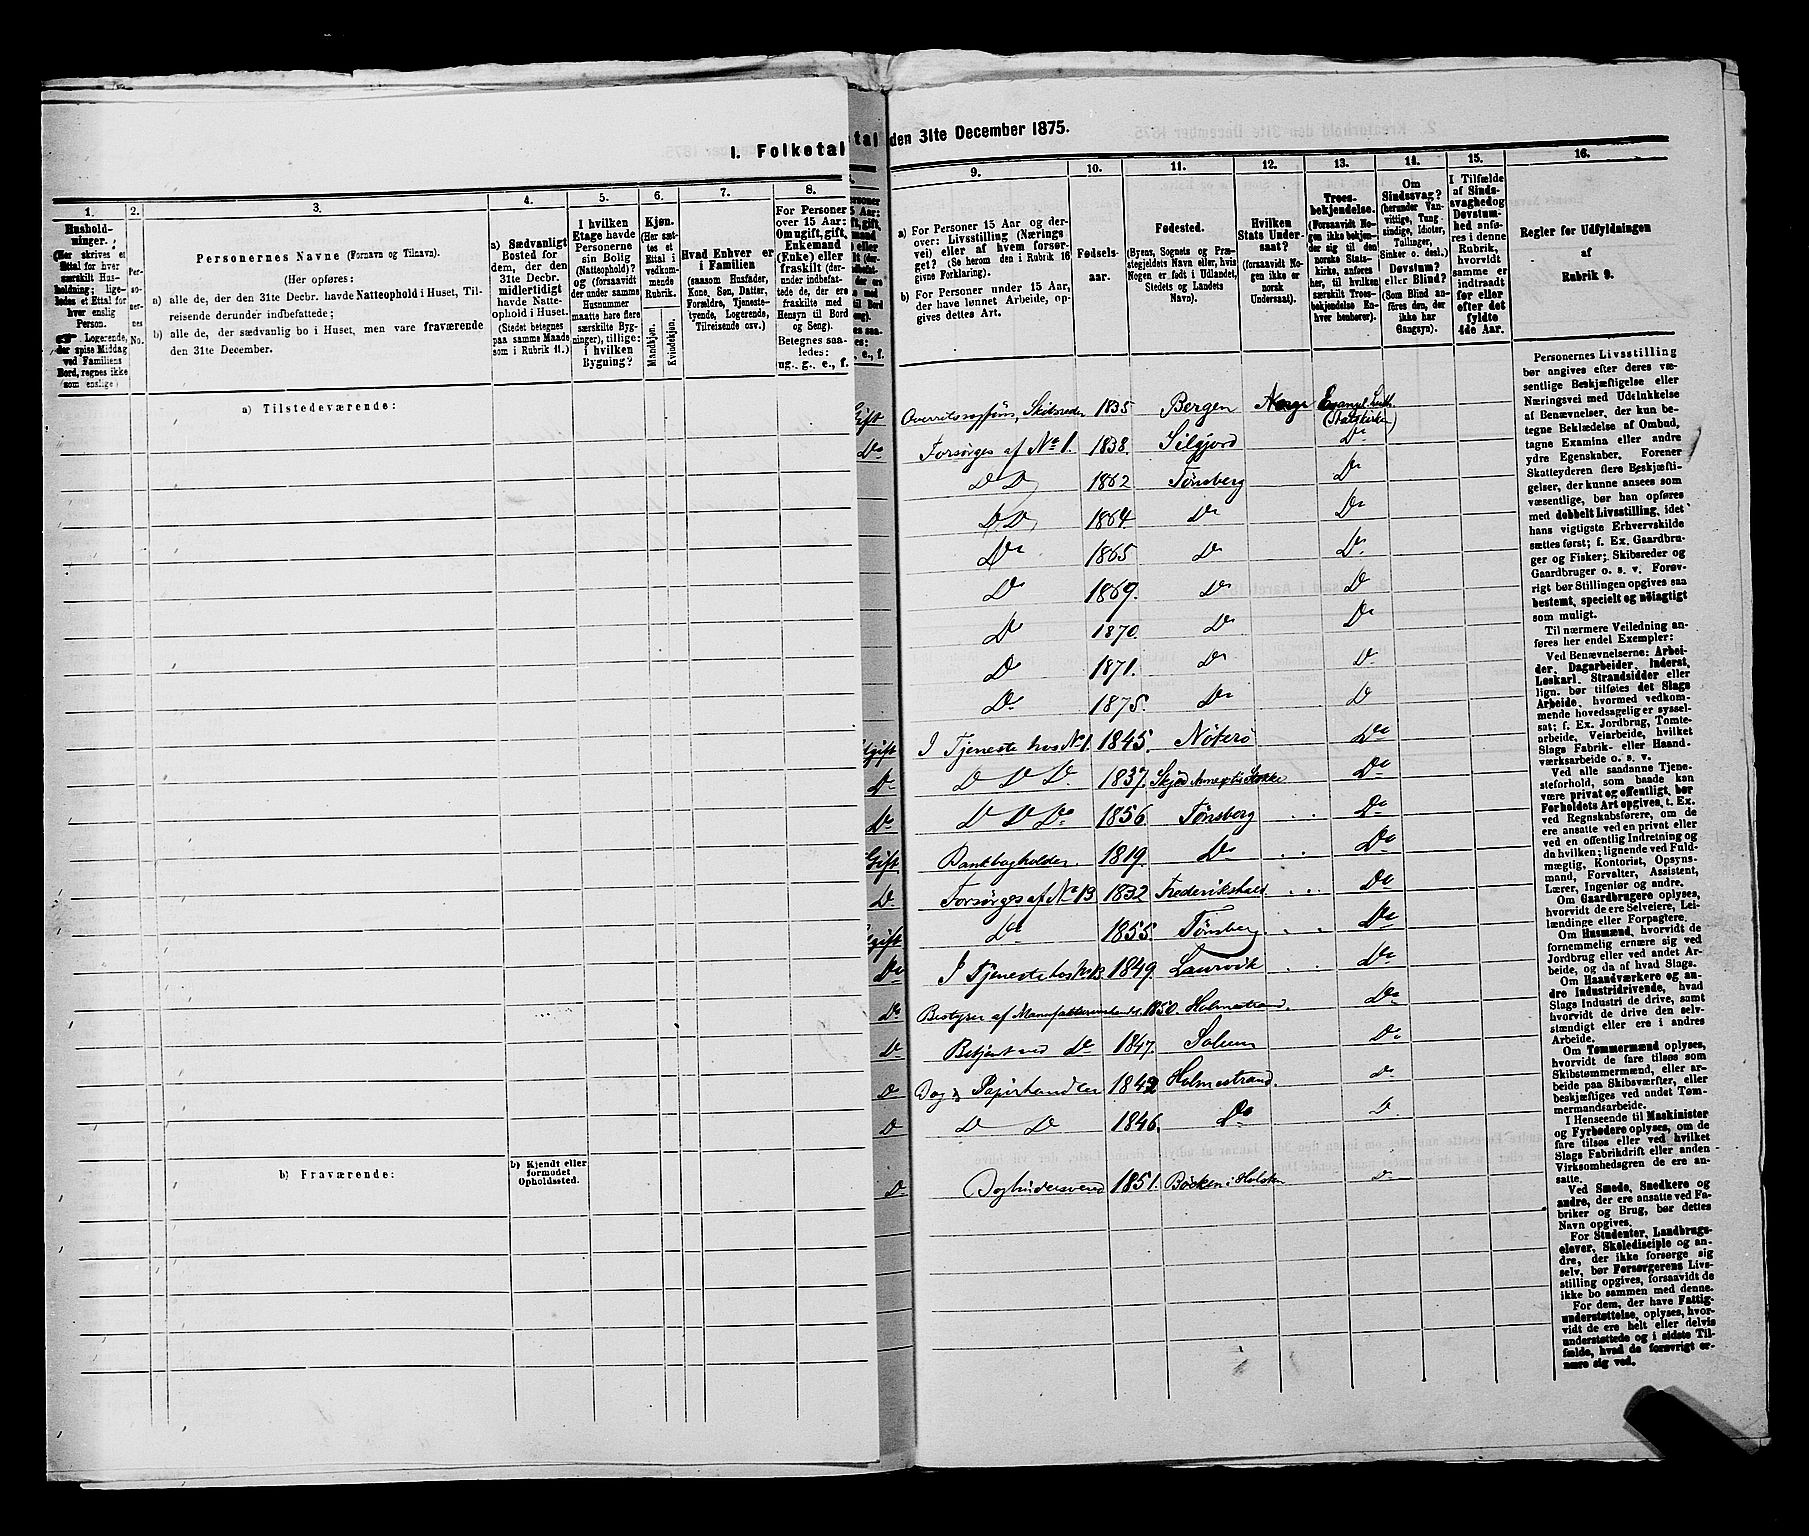 I. Folketal
tal
den 31te December 1875.
1.
Husholdninger.
(Her skrives et
Ettal for hver
særskilt Husholdning;
ligeledes et Ettal for
hver enslig
Person.
Logerende,
der spise Middag
ved Familiens
Bord, regnes ikke
som enslige)
2.
Personernes No.
3.
Personernes Navne (Fornavn og Tilnavn).
(Her opføres:
a) alle de, der den 31te Decbr. havde Natteophold i Huset, Tilreisende derunder indbefattede;
b) alle de, der sædvanlig bo i Huset, men vare fraværende
den 31te December.
4.
a) Sædvanligt
Bosted for
dem, der den
31te Decbr.
midlertidigt
havde Natteophold
i Huset.
(Stedet betegnes
paa samme Maade
som i Rubrik 11.)
5.
I hvilken
Etage havde
Personerne
sin Bolig
(Natteophold)?
og (forsaavidt
der under samme
Husnummer
maatte høre flere
særskilte Bygninger),
tillige:
i hvilken
Bygning?
6.
Kjøn.
(Her sættes
et
Ettal i
vedkommende
Rubrik.
Mandkjøn.
Kvindekjøn.
7.
Hvad Enhver er
i Familien
(saasom Husfader,
Kone, Søn, Datter,
Forældre, Tjenestetyende,
Logerende,
Tilreisende osv.)
8.
For Personer
over 15 Aar:
Om ugift, gift,
Enkemand
(Enke) eller
fraskilt (derunder
indbefattede
de, der ere
fraskilte med
Hensyn til Bord
og Seng).
Betegnes saaledes:
ug., g., e., f.
9.
a) For Personer 15 Aar og derover: Livsstilling (Næringsvei) eller af hvem forsørget? (Se herom den i Rubrik 16
givne Forklaring).
b) For Personer under 15 Aar,
der have lønnet Arbeide, opgives dettes Art.
10.
Fødselsaar.
11.
Fødested.
(Byens, Sognets og Præstegjeldets
Navn eller, hvis
Nogen er født i Udlandet,
Stedets og Landets
Navn).
12.
Hvilken
Stats Undersaat?
(forsaavidt Nogen
ikke er
norsk
Undersaat).
13.
Troesbekjendelse.
(Forsaavidt
Nogen
ikke bekjender
sig til den
norske Statskirke,
anføres
her, til hvilken
særskilt Troesbekjendelse
Enhver
henhører).
14.
Om
Sindssvag?
(herunder Vanvittige,
Tungsindige,
Idioter,
Tullinger,
Sinker o. desl.).
Døvstum?
eller Blind?
(Som Blind anføres
den, der
ikke har
Gangsyn).
15.
I Tilfælde
af Sindssvaghed
og
Døvstumhed
anføres
i denne
Rubrik,
hvorvidt
samme er
indtraadt
før eller
efter det
fyldte
4de Aar.
16.
Regler for Udfyldningen
af
Rubrik 9.
a) Tilstedeværende:
Gift 1835 Bergen Norge
Do Forsørges af No 1. 1838. Silgjord Do
D D 1862 Tønsberg Do
D D 1864 Do Do
Do 1865 Do Do
Do 1869. Do Do
Do 1870. Do Do
Do 1871. Do Do
Do 1875. Do Do
I Tjeneste hos No 1. 1845. Nøterø Do
Do D D D 1837. Do
Do D D Do 1856. Tønsberg Do
Gift Bankbogholder. 1819. Do Do
D. Forsørges af No 13 1832 Frederikshald Do
Do 1855. Tønsberg Do
Do I Tjeneste hos No 13 1849. Laurvik Do
Do Bestyrer af 1850. Holmestrand. Do
Do Betjent ved Do 1847. Solum Do
Do Papirhandler 1842 Holmestrand. Do
D D D 1846. Do D
b) Fraværende:
b) Kjendt eller
formodet
Opholdssted.
D. 1851. i Do
Personernes Livsstilling
bør angives efter deres væsentlige Beskjæftigelse eller
Næringsvei med Udelukkelse
af Benævnelser, der kun betegne Beklædelse af Ombud,
tagne Examina eller andre
ydre Egenskaber. Forener
Skatteyderen flere Beskjæftigelser, der kunne ansees som
væsentlige, bør han opføres
med dobbelt Livsstilling, idet
hans vigtigste Erhvervskilde
sættes først; f. Ex. Gaardbruger og Fisker; Skibsreder og
Gaardbruger o. s. v. Forøvrigt bør Stillingen opgives saa
bestemt, specielt og nøiagtigt
som muligt.
Til nærmere Veiledning anføres her endel Exempler:
Ved Benævnelserne: Arbeider, Dagarbeider, Inderst,
Løskarl, Strandsidder eller
lign. bør tilføies det Slags
Arbeide, hvormed vedkommende hovedsagelig er sysselsat; f. Ex. Jordbrug, Tomtearbeide, Veiarbeide, hvilket
Slags Fabrik- eller Haandværksarbeide o. s. v.
Ved alle saadanne Tjenesteforhold, som baade kan
være privat og offentligt, bør
Forholdets Art opgives, t. Ex.
ved Regnskabsførere, om de
ere ansatte ved en privat eller
en offentlig Indretning og
da hvilken; lignende ved Fuldmægtig, Kontorist, Opsynsmand, Forvalter, Assistent,
Lærer, Ingeniør og andre.
Om Gaardbrugere oplyses,
hvorvidt de ere Selveiere, Leilændinge eller Forpagtere.
Om Husmænd, hvorvidt de
fornemmelig ernære sig ved
Jordbrug eller ved andet Arbeide, og da af hvad Slags.
Om Haandværkere og andre Industridrivende, hvad
Slags Industri de drive, samt
hvorvidt de drive den selvstændigt eller ere i andres
Arbeide.
Om Tømmermænd oplyses,
hvorvidt de fare tilsøs som
Skibstømmermænd, eller arbeide paa Skibsværfter, eller
beskjæftiges ved andet Tømmermandsarbeide.
I Henseende til Maskinister
og Fyrbødere oplyses, om de
fare tilsøs eller ved hvilket
Slags Fabrikdrift eller anden
Virksomhedsgren de ere ansatte.
Ved Smede, Snedkere og
andre, der ere ansatte ved Fabriker og Brug, bør dettes
Navn opgives.
For Studenter, Landbrugselever, Skoledisciple og andre, der ikke forsørge sig
selv, bør Forsørgerens Livsstilling opgives, forsaavidt de
ikke bo sammen med denne.
For dem, der have Fattigunderstøttelse, oplyses, hvorvidt de ere helt eller delvis
understøttede og i sidste Tilfælde, hvad de forøvrigt ernære sig ved.